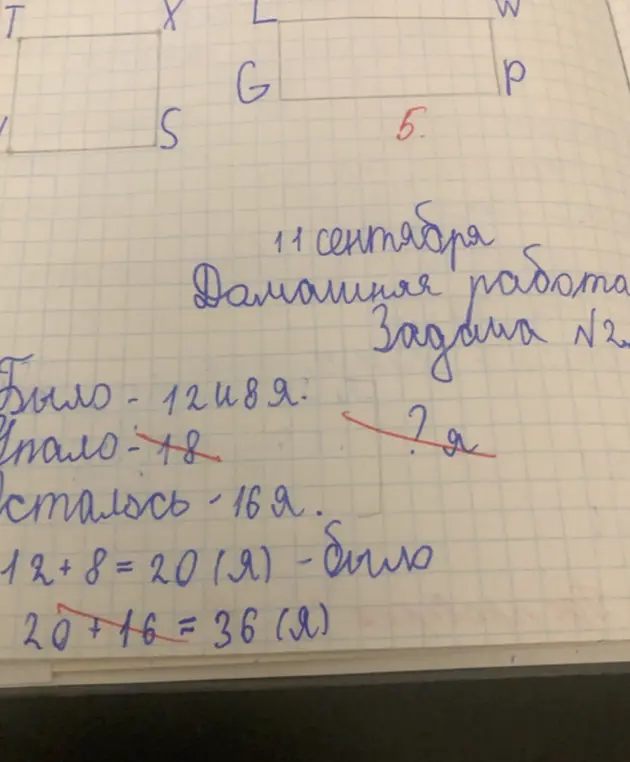 T X L W
G P
S
5.
11 сентября
Домашняя работа
Задача №2.
Было - 12 и 8 я.
Упало - 18 ? я
Осталось - 16 я.
12 + 8 = 20 (я) - было
20 + 16 = 36 (я)